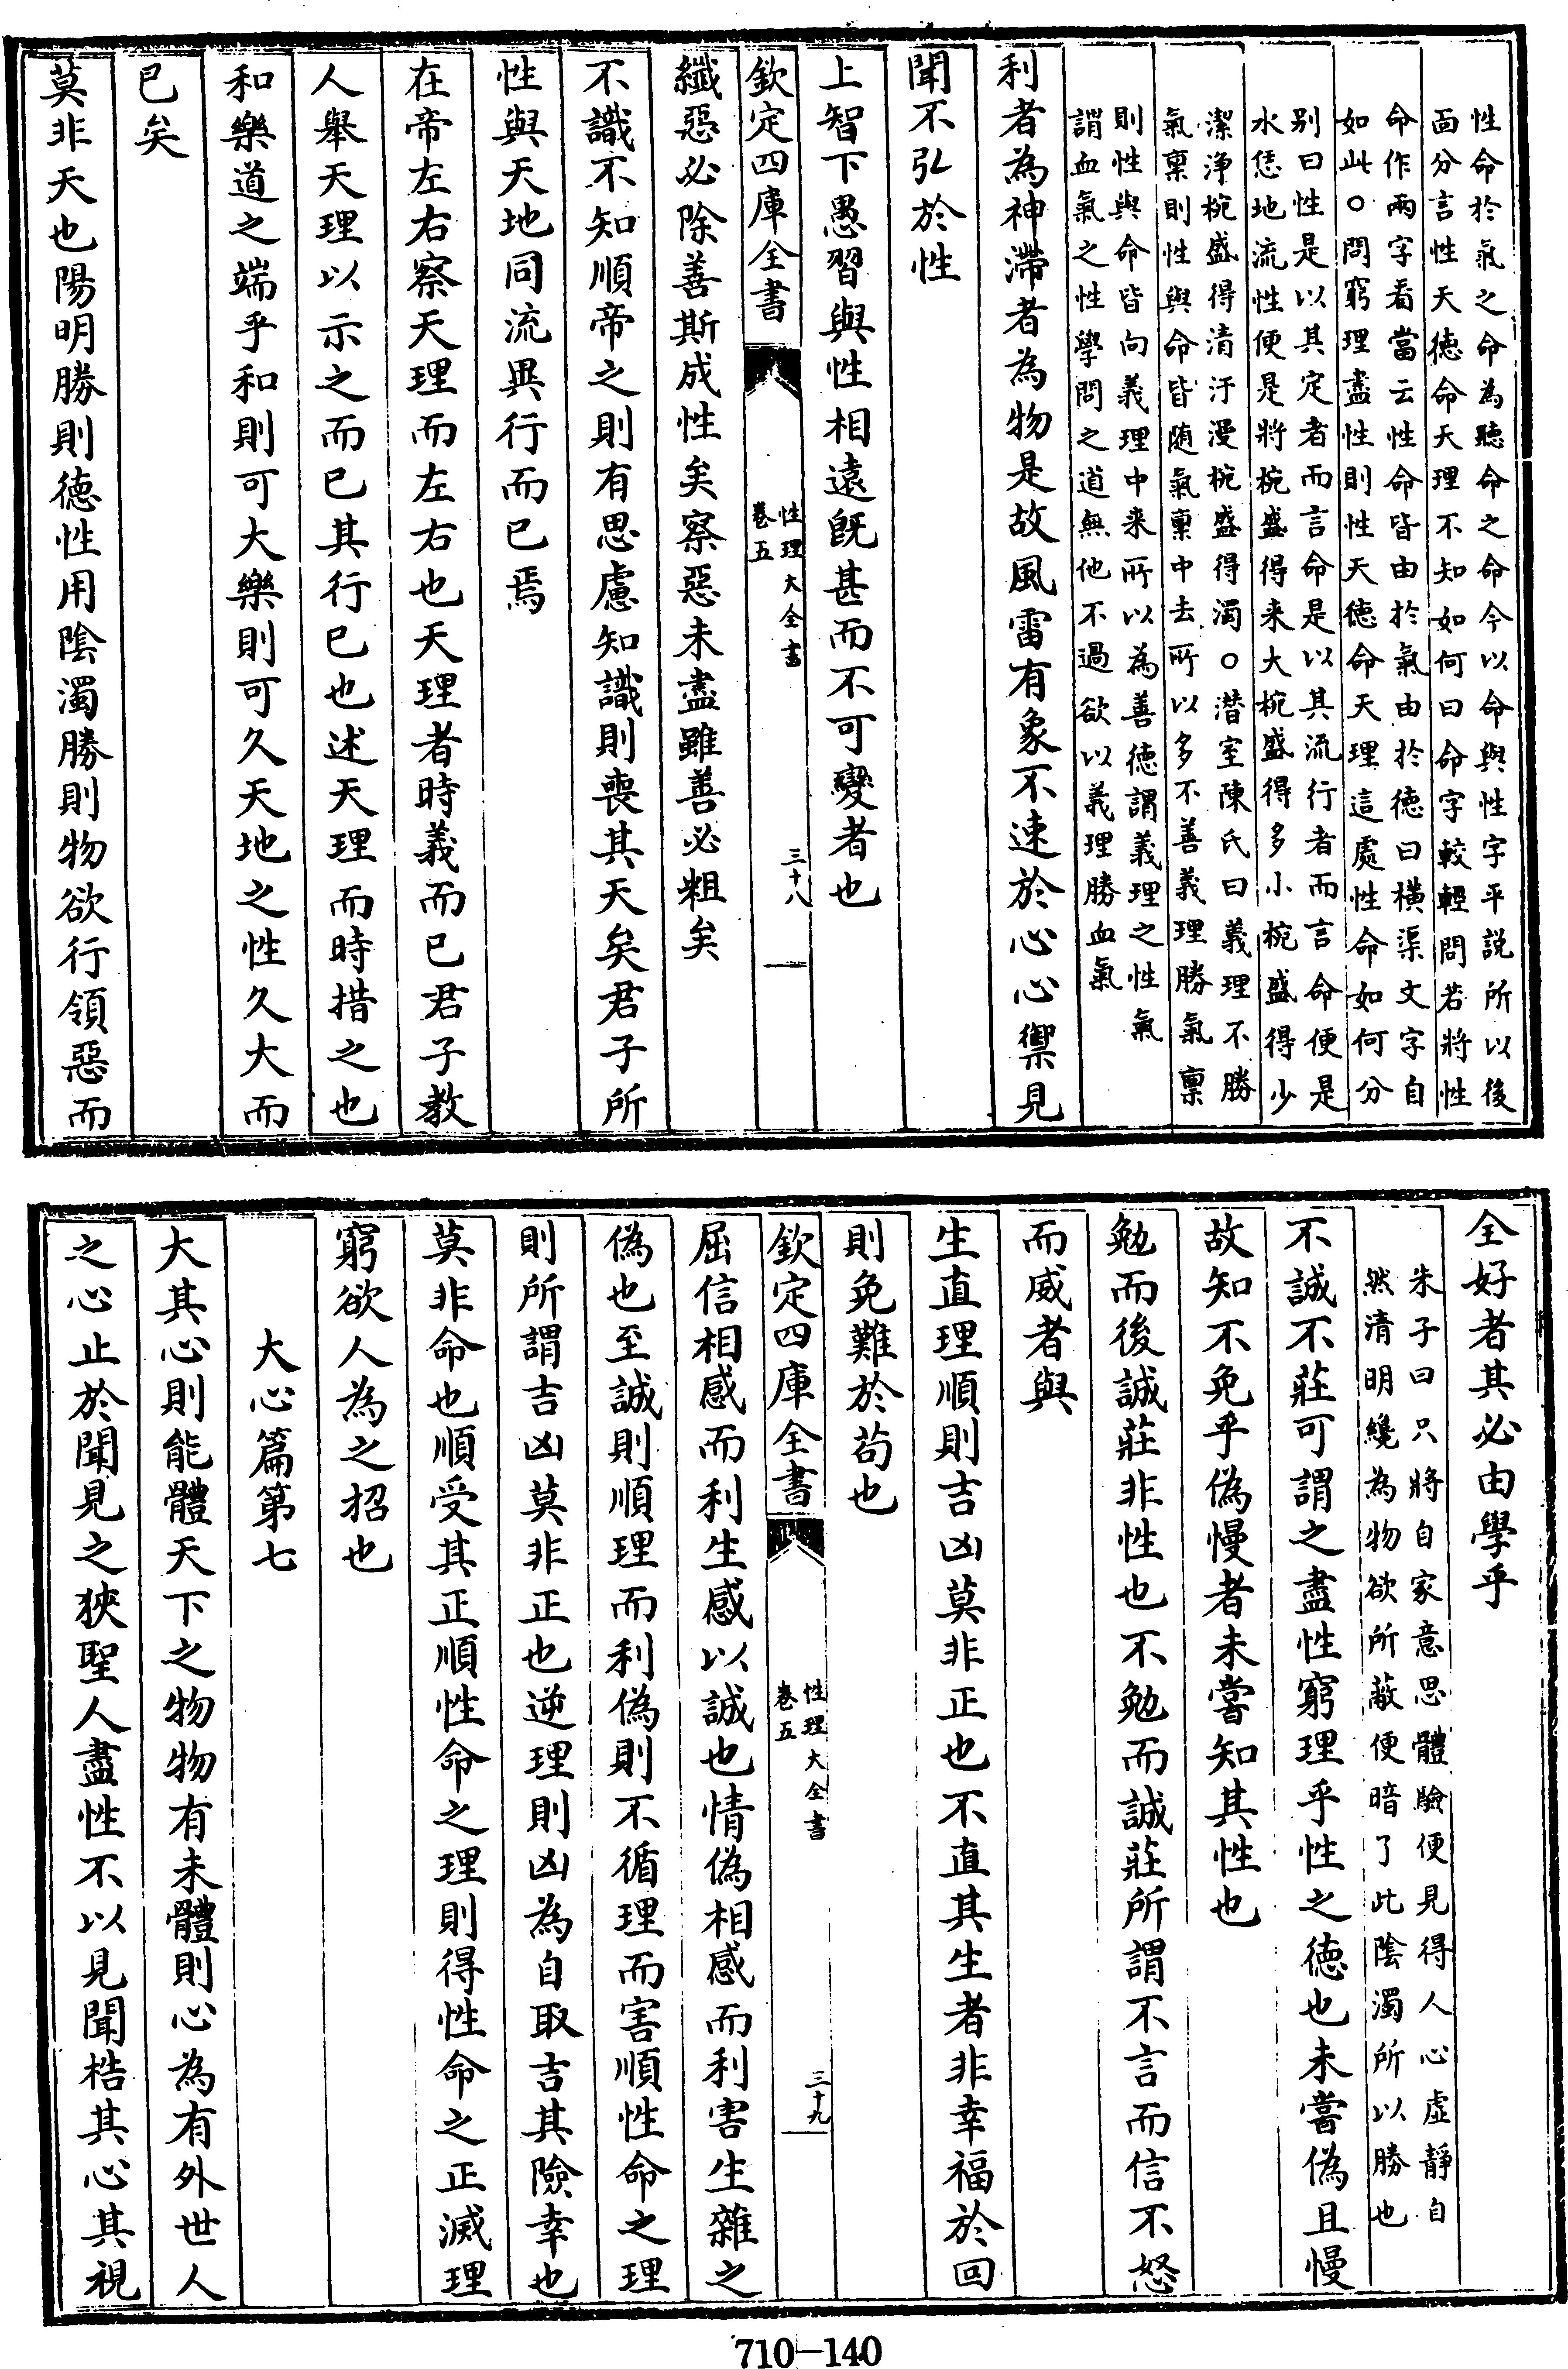 性命於氣之命為聽命之命今以命與性字平說所以後
面分言性天德命天理不知如何曰命字較輕問若將性
命作兩字看當云性命皆由於氣由於德曰橫渠文字自
如此〇問窮理盡性則性天德命天理這處性命如何分
别曰性是以其定者而言命是以其流行者而言命便是
水恁地流性便是將椀盛得来大椀盛得多小椀盛得少
潔浄椀盛得清汙漫椀盛得濁〇潛室陳氏曰義理不勝
氣稟則性與命皆随氣稟中去所以多不善義理勝氣稟
則性與命皆向義理中来所以為善德謂義理之性氣
謂血氣之性學問之道無他不過欲以義理勝血氣
利者為神滯者為物是故風雷有象不速於心心禦見
聞不弘於性
上智下愚習與性相遠旣甚而不可變者也
欽定四庫全書
性理大全書
卷五
三十八
纖惡必除善斯成性矣察惡未盡雖善必粗矣
不識不知順帝之則有思慮知識則喪其天矣君子所
性與天地同流異行而已焉
在帝左右察天理而左右也天理者時義而已君子教
人舉天理以示之而已其行已也述天理而時措之也
和樂道之端乎和則可大樂則可久天地之性久大而
已矣
莫非天也陽明勝則德性用陰濁勝則物欲行領惡而
全好者其必由學乎
朱子曰只將自家意思體驗便見得人心虛靜自
然清明纔為物欲所蔽便暗了此陰濁所以勝也
不誠不莊可謂之盡性窮理乎性之德也未嘗偽且慢
故知不免乎偽慢者未嘗知其性也
勉而後誠莊非性也不勉而誠莊所謂不言而信不怒
而威者與
生直理順則吉凶莫非正也不直其生者非幸福於回
則免難於苟也
欽定四庫全書
性理大全書
卷五
三十九
屈信相感而利生感以誠也情偽相感而利害生雜之
偽也至誠則順理而利偽則不循理而害順性命之理
則所謂吉凶莫非正也逆理則凶為自取吉其險幸也
莫非命也順受其正順性命之理則得性命之正滅理
窮欲人為之招也
大心篇第七
大其心則能體天下之物物有未體則心為有外世人
之心止於聞見之狹聖人盡性不以見聞梏其心其視
710-140